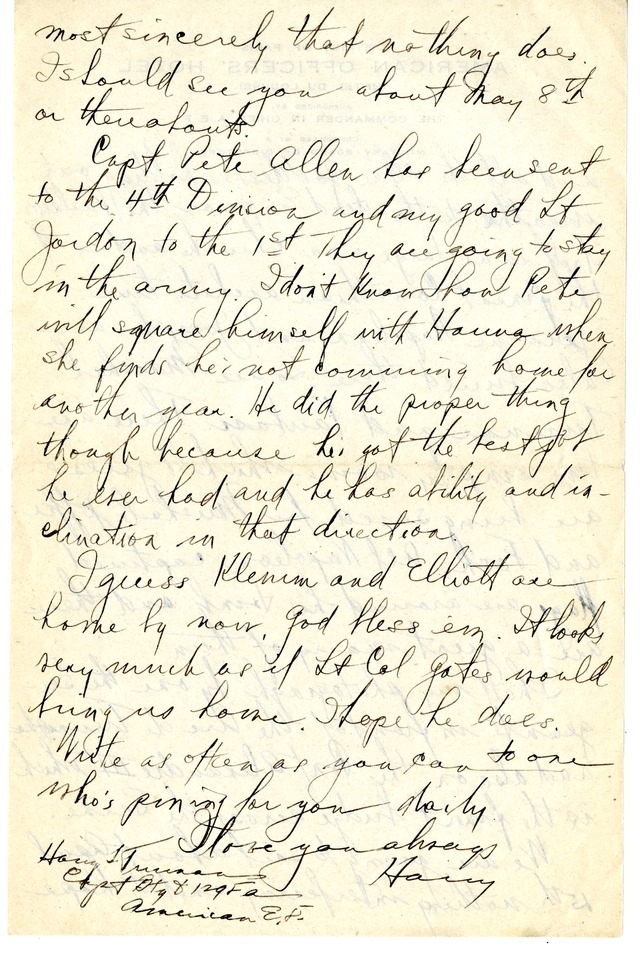 most sincerely that nothing does.
I should see you about May 8th
or thereabouts.
Capt. Pete Allen has been sent
to the 4th Division and my good Lt
Jordon to the 1st They are going to stay
in the army. I don't know how Pete
will square himself with Hanna when
she finds he's not comming home for
another year. He did the proper thing
though because he's got the best job
he ever had and he has ability and in-
clination in that direction.
I guess Klemm and Elliott are
home by now, God bless 'em. It looks
very much as if Lt Col Gates would
bring us home. I hope he does.
Write as often as you can to one
who's pining for you daily
I love you always
Harry
Harry S Truman
Capt Bty D 129 FA
American E.F.